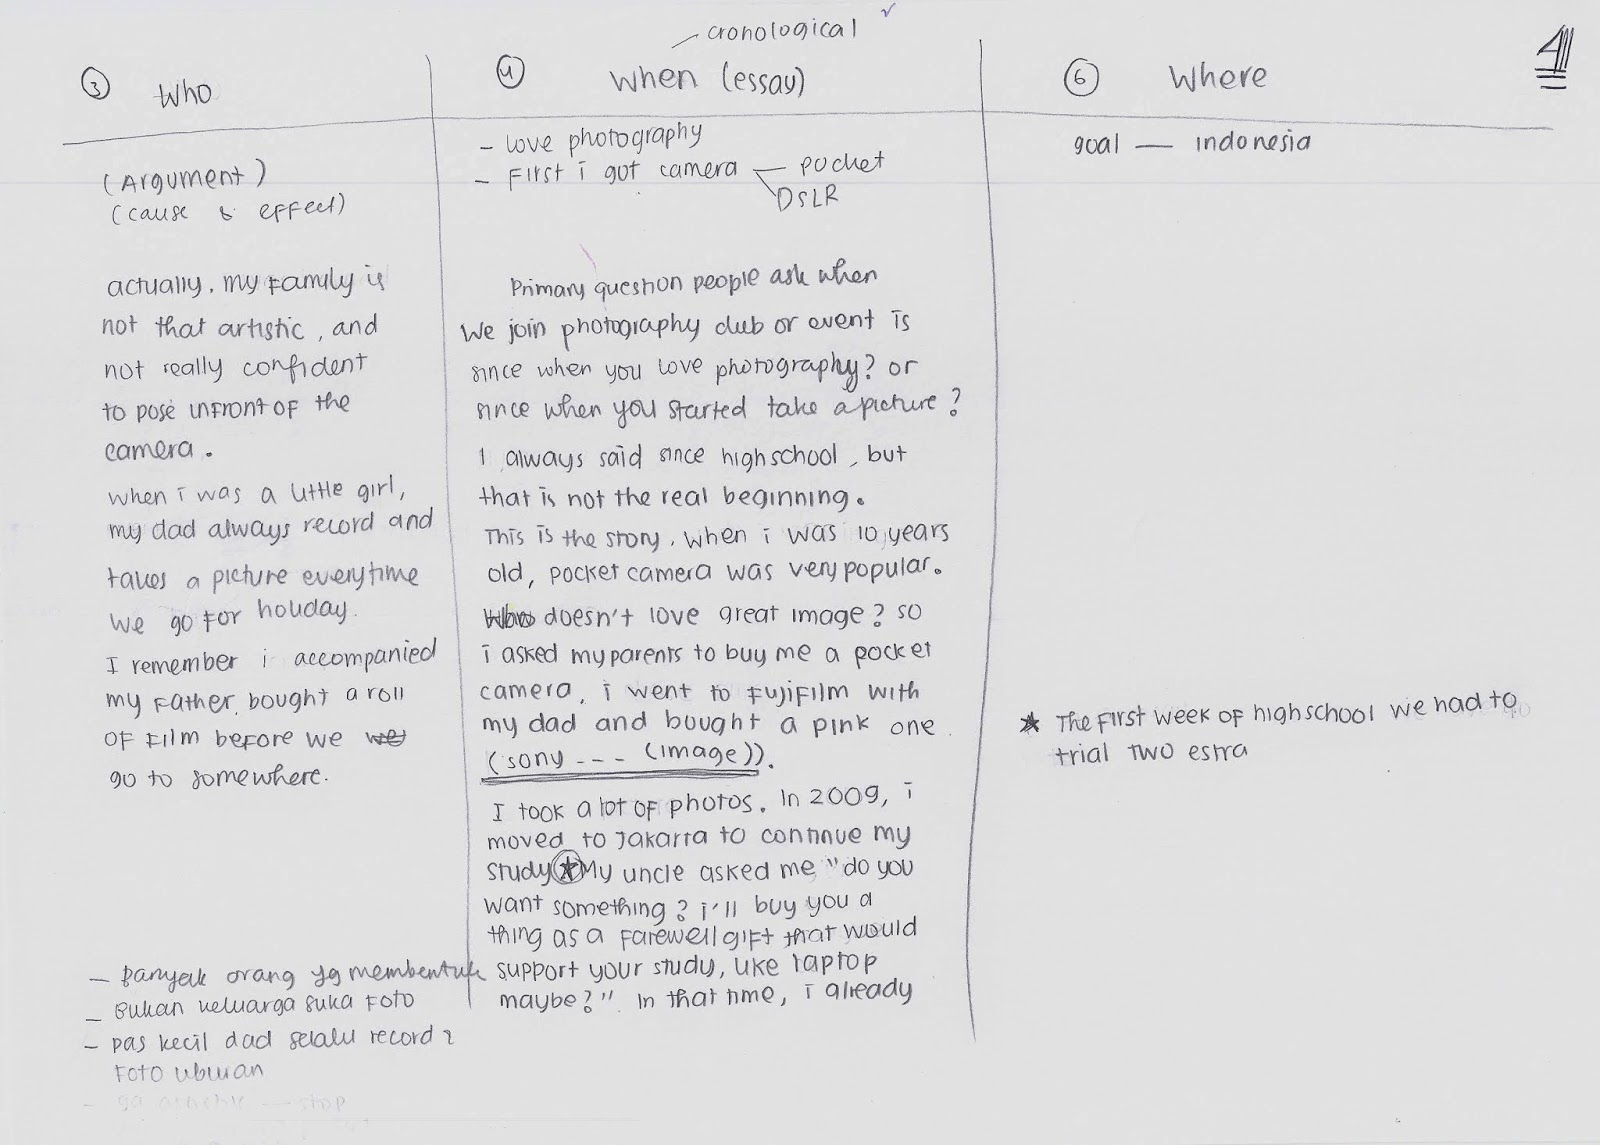 cronological
4
③ Who
(Argument)
(cause & effect)
actually, my family is
not that artistic, and
not really confident
to pose infront of the
camera.
when i was a little girl,
my dad always record and
takes a picture everytime
we go for holiday.
I remember i accompanied
my father bought a roll
of film before we we
go to somewhere.
- Banyak orang yg membentuk
- Bukan keluarga suka foto
- pas kecil dad selalu record 2
foto liburan
- ga artistic — stop
④ When (essay)
- love photography
- First i got camera — pocket
DSLR
Primary question people ask when
we join photography club or event is
since when you love photography? or
since when you started take a picture?
I always said since highschool, but
that is not the real beginning.
This is the story. when i was 10 years
old, pocket camera was very popular.
Who doesn't love great image? so
i asked my parents to buy me a pocket
camera. i went to Fujifilm with
my dad and bought a pink one
(sony --- (image)).
I took a lot of photos. In 2009, i
moved to Jakarta to continue my
study ★ My uncle asked me "do you
want something? i'll buy you a
thing as a farewell gift that would
support your study, like laptop
maybe?". In that time, i already
⑥ Where
goal — indonesia
★ The first week of highschool we had to
trial two estra